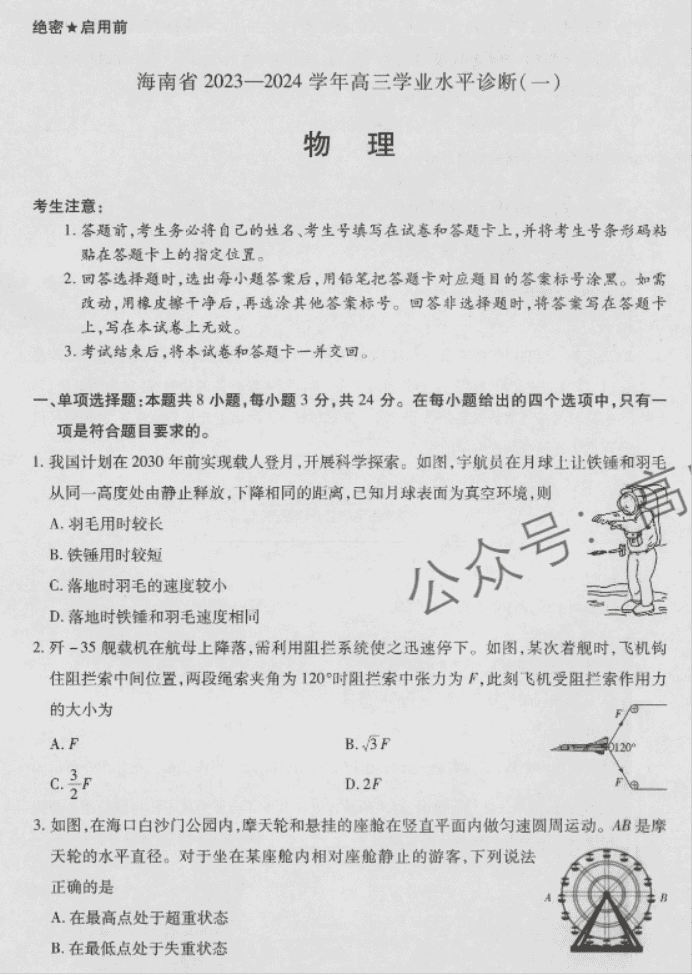 绝密★启用前
海南省 2023—2024 学年高三学业水平诊断(一)
物 理
考生注意:
1. 答题前,考生务必将自己的姓名、考生号填写在试卷和答题卡上,并将考生号条形码粘
贴在答题卡上的指定位置。
2. 回答选择题时,选出每小题答案后,用铅笔把答题卡对应题目的答案标号涂黑。如需
改动,用橡皮擦干净后,再选涂其他答案标号。回答非选择题时,将答案写在答题卡
上,写在本试卷上无效。
3. 考试结束后,将本试卷和答题卡一并交回。
一、单项选择题:本题共 8 小题,每小题 3 分,共 24 分。在每小题给出的四个选项中,只有一
项是符合题目要求的。
1. 我国计划在 2030 年前实现载人登月,开展科学探索。如图,宇航员在月球上让铁锤和羽毛
从同一高度处由静止释放,下降相同的距离,已知月球表面为真空环境,则
A. 羽毛用时较长
B. 铁锤用时较短
C. 落地时羽毛的速度较小
D. 落地时铁锤和羽毛速度相同
公众号:高
2. 歼－35 舰载机在航母上降落,需利用阻拦系统使之迅速停下。如图,某次着舰时,飞机钩
住阻拦索中间位置,两段绳索夹角为 120°时阻拦索中张力为 F,此刻飞机受阻拦索作用力
的大小为
A. F
B. √3F
C. 3/2F
D. 2F
F
120°
F
3. 如图,在海口白沙门公园内,摩天轮和悬挂的座舱在竖直平面内做匀速圆周运动。AB 是摩
天轮的水平直径。对于坐在某座舱内相对座舱静止的游客,下列说法
正确的是
A. 在最高点处于超重状态
B. 在最低点处于失重状态
A
B